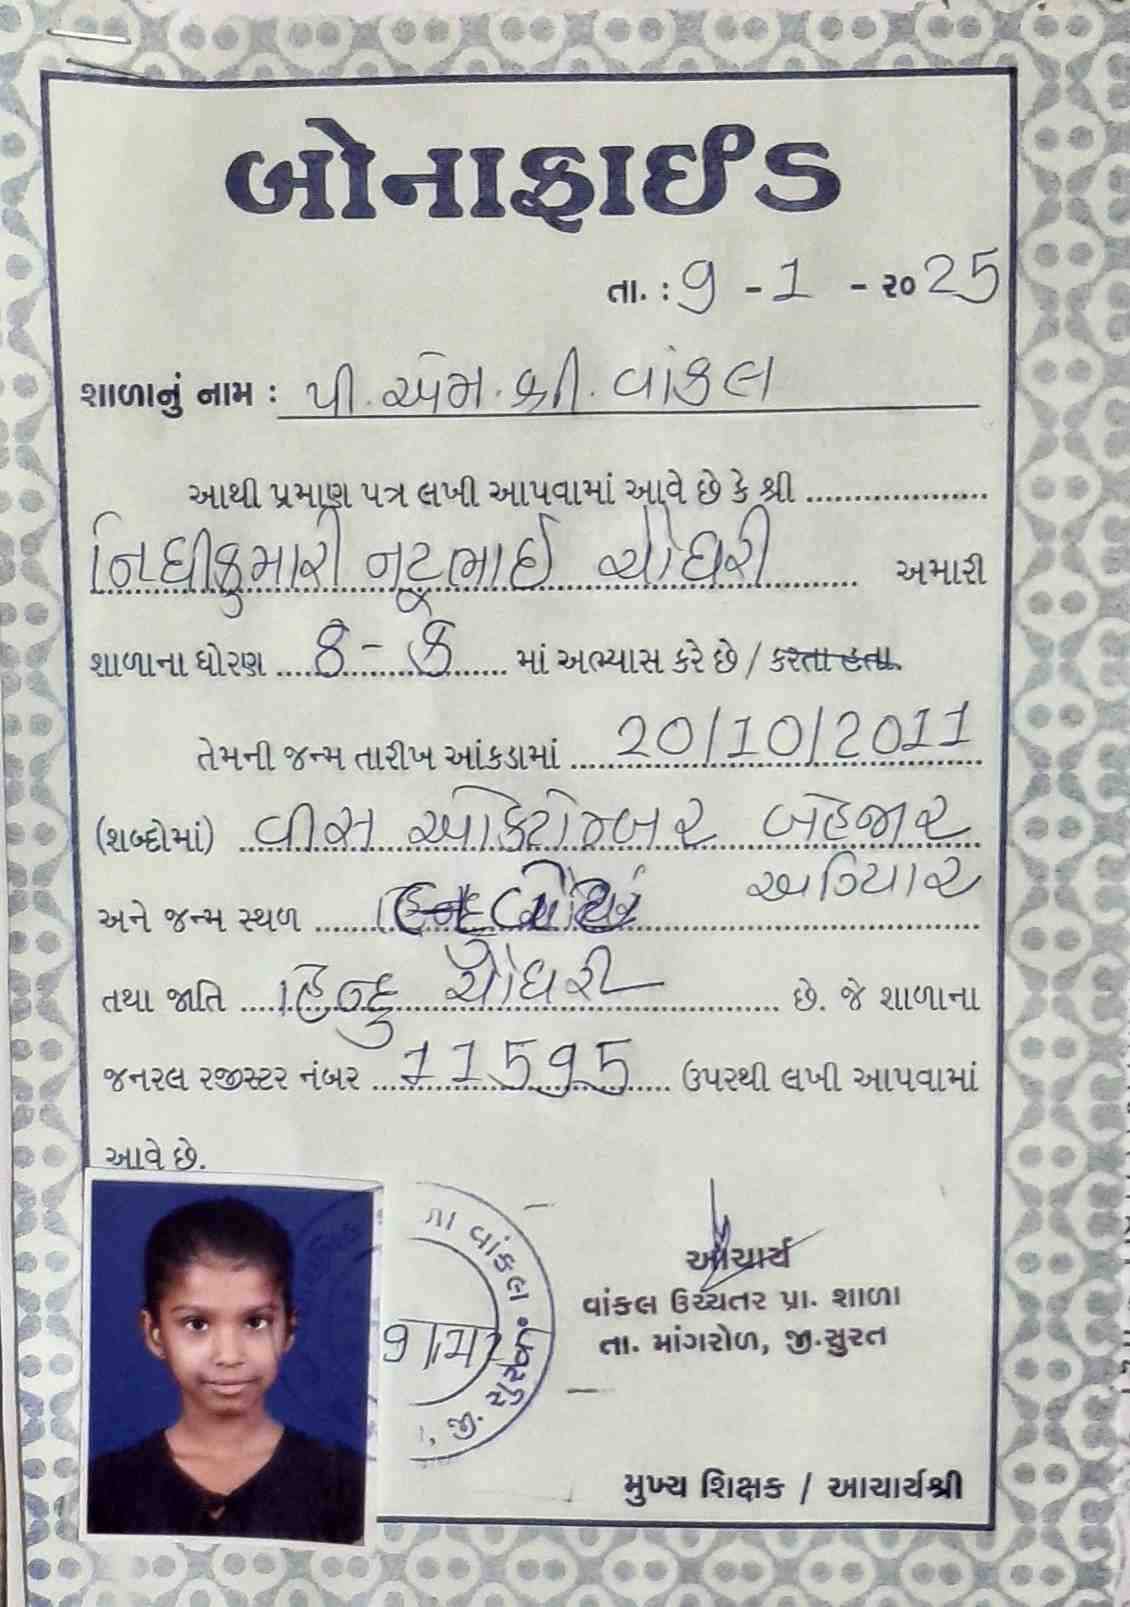 બોનાફાઈડ
તા. : 9 - 1 - ૨૦25
શાળાનું નામ : પી. એમ. શ્રી. વાંકલ
આથી પ્રમાણ પત્ર લખી આપવામાં આવે છે કે શ્રી ....................
નિધીકુમારી નટુભાઈ ચૌધરી અમારી
શાળાના ધોરણ ....8 - ક.... માં અભ્યાસ કરે છે / કરતા હતા.
તેમની જન્મ તારીખ આંકડામાં ...20/10/2011
(શબ્દોમાં) વીસ ઓક્ટોમ્બર બેહજાર
અગિયાર
અને જન્મ સ્થળ
તથા જાતિ ....હિન્દુ ચૌધરી.... છે. જે શાળાના
જનરલ રજીસ્ટર નંબર ...11595.... ઉપરથી લખી આપવામાં
આવે છે.
વાંકલ
જી. સુરત
આચાર્ય
વાંકલ ઉચ્ચતર પ્રા. શાળા
તા. માંગરોળ, જી.સુરત
મુખ્ય શિક્ષક / આચાર્યશ્રી